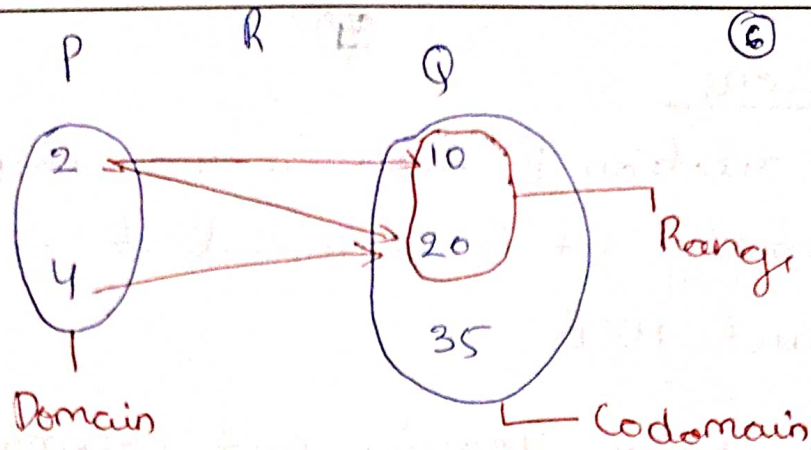 P R Q 6
2 10
20
4
35
Range
Domain
Codomain